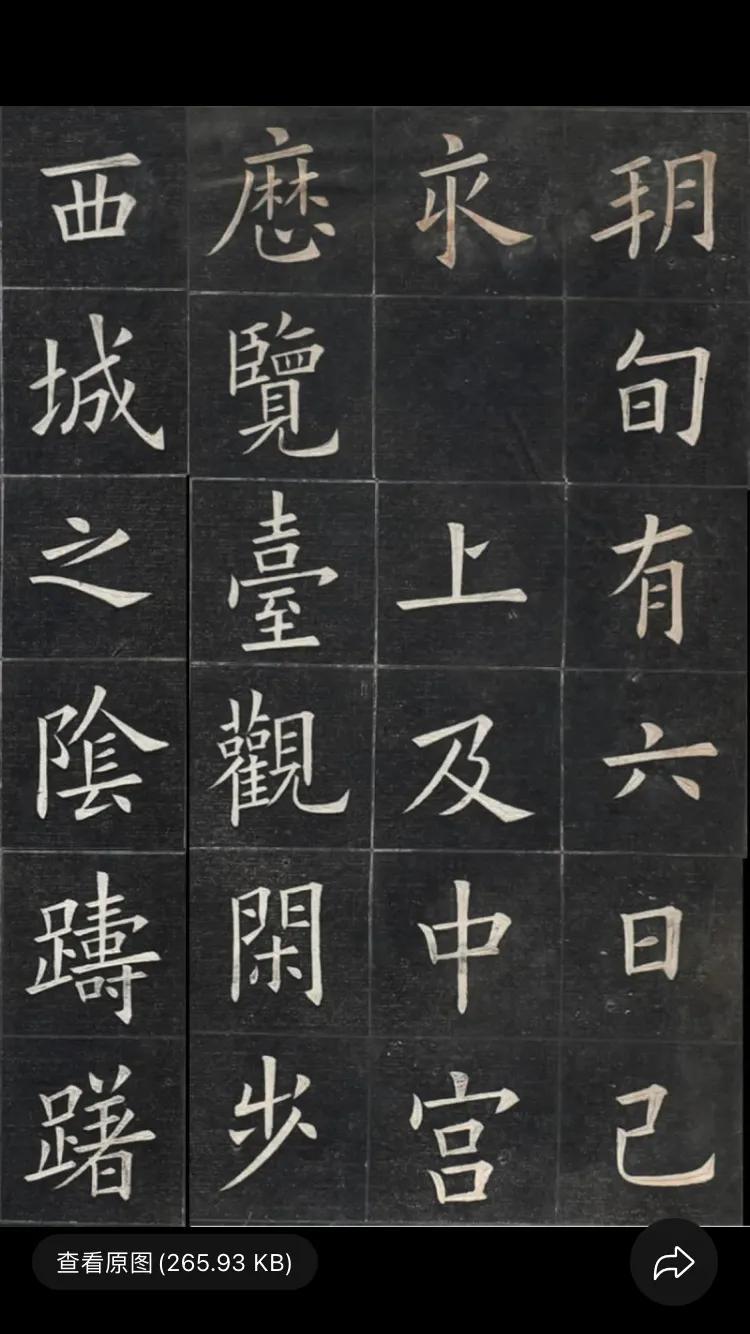 朔旬有六日己
亥上及中宫
歷覽臺觀閑步
西城之陰躊躇
查看原图(265.93 KB)